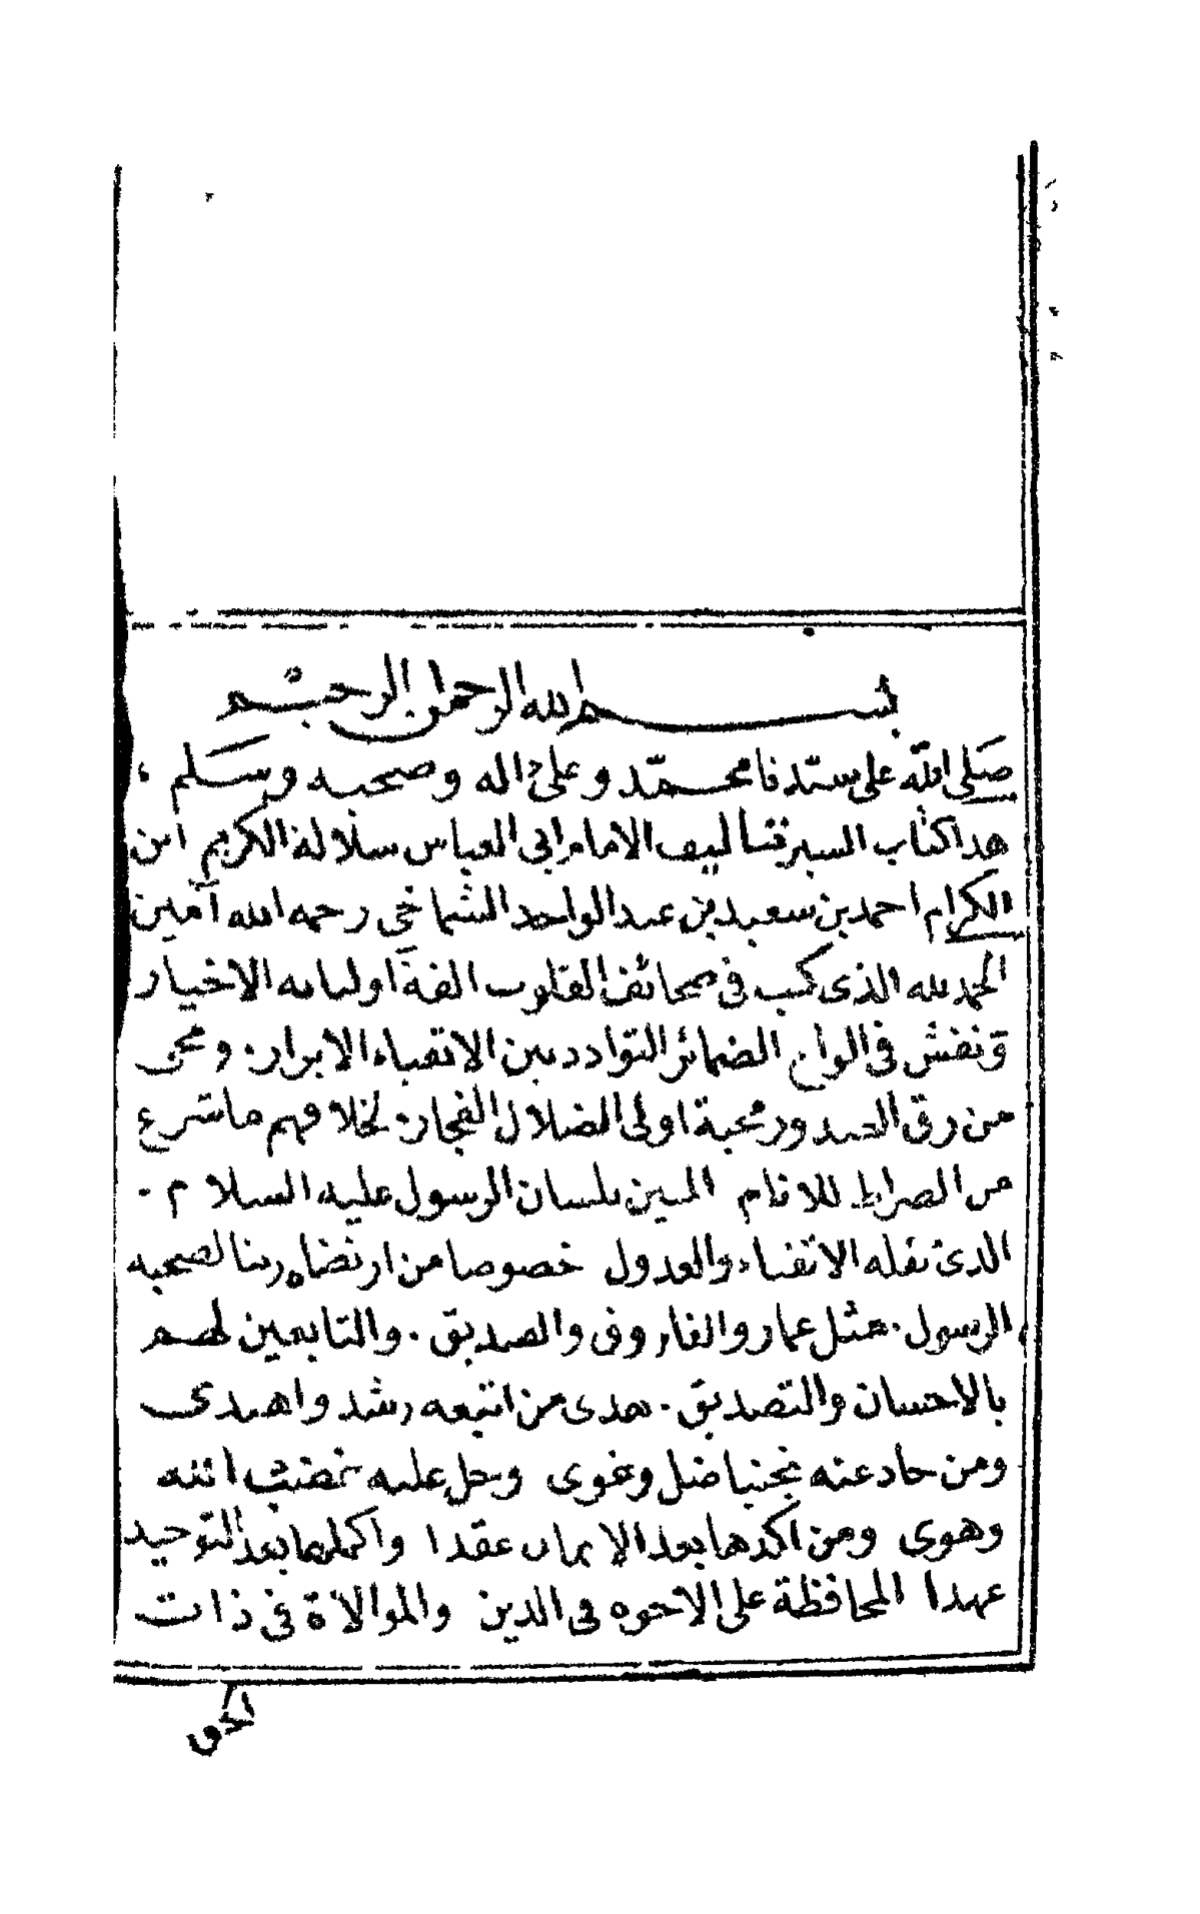 بسم الله الرحمن الرحيم
صلى الله على سيدنا محمد وعلى اله وصحبه وسلم ،
هدا كتاب السير تتاليف الامام ابي العباس سلالة الكريم ابن
الكرام احمد بن سعيد بن عبد الواحد الشماخي رحمه الله آمين
الحمد لله الذى كتب في صحائف القلوب الفة اوليائه الاخيار
ونقش في الواح الضمائر التوادد بين الاتقياء الابرار . ومحى
من رق الصدور محبة اولى الضلال الفجار . لخلافهم ما شرع
من الصراط للانام المبين بلسان الرسول عليه السلام .
الدى نقله الاتقياء والعدول خصوصا من ارتضاه ربنا لصحبه
الرسول . مثل عمار والفاروق والصديق . والتابعين لهم
بالاحسان والتصديق . هدى من اتبعه رشد واهتدى
ومن حاد عنه تجنبا ضل وغوى وحل عليه
وهوى ومن اكدها بعد الايمان عقدا واكملها بعد التوحيد
عهدا المحافظة على الاخوه في الدين والموالاة في ذات
الحق